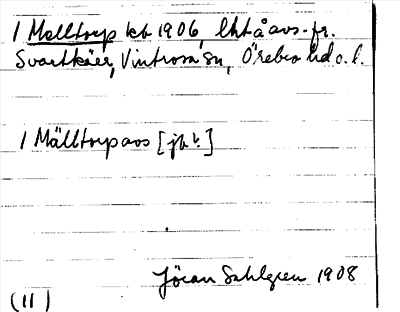 1 Mälltorp kb 1906, lht å avs. fr.
Svartkärr, Vintrosa sn, Örebro hd o. l.
1 Mälltorp aos [jb!]
Jöran Sahlgren 1908
(11)